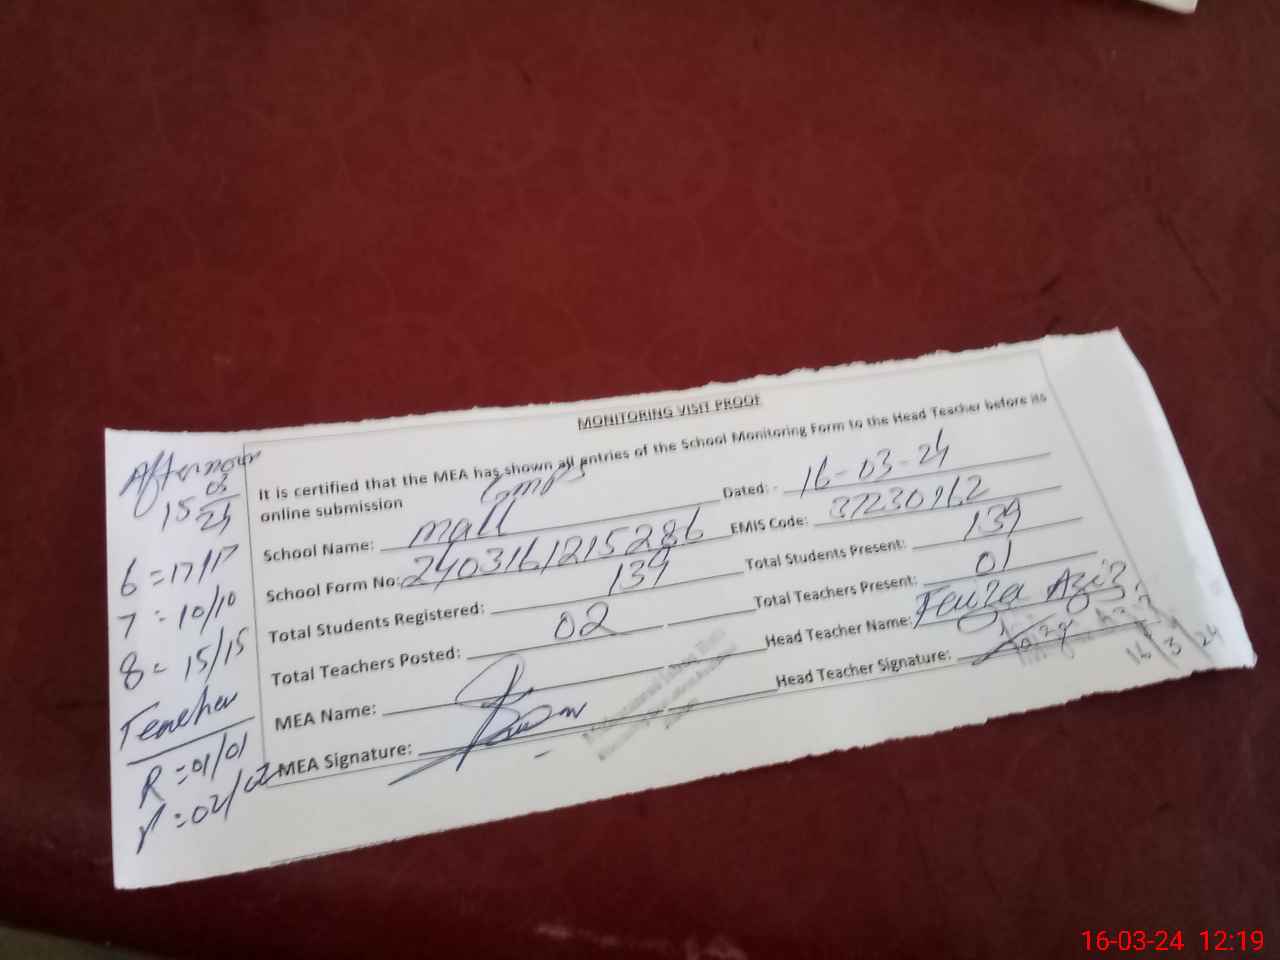 MONITORING VISIT PROOF
It is certified that the MEA has shown all entries of the School Monitoring Form to the Head Teacher before its
online submission
School Name: mall Gmps Dated: - 16-03-24
School Form No: 2403161215286 EMIS Code: 37230162
Total Students Registered: 139 Total Students Present: 139
Total Teachers Posted: 02 Total Teachers Present: 01
MEA Name: Head Teacher Name: Faiza Aziz
MEA Signature: Head Teacher Signature:
16/3/24
Afternoon
15 03
24
6 = 17/17
7 = 10/10
8 = 15/15
Teacher
R = 01/01
= 02/02
16-03-24 12:19